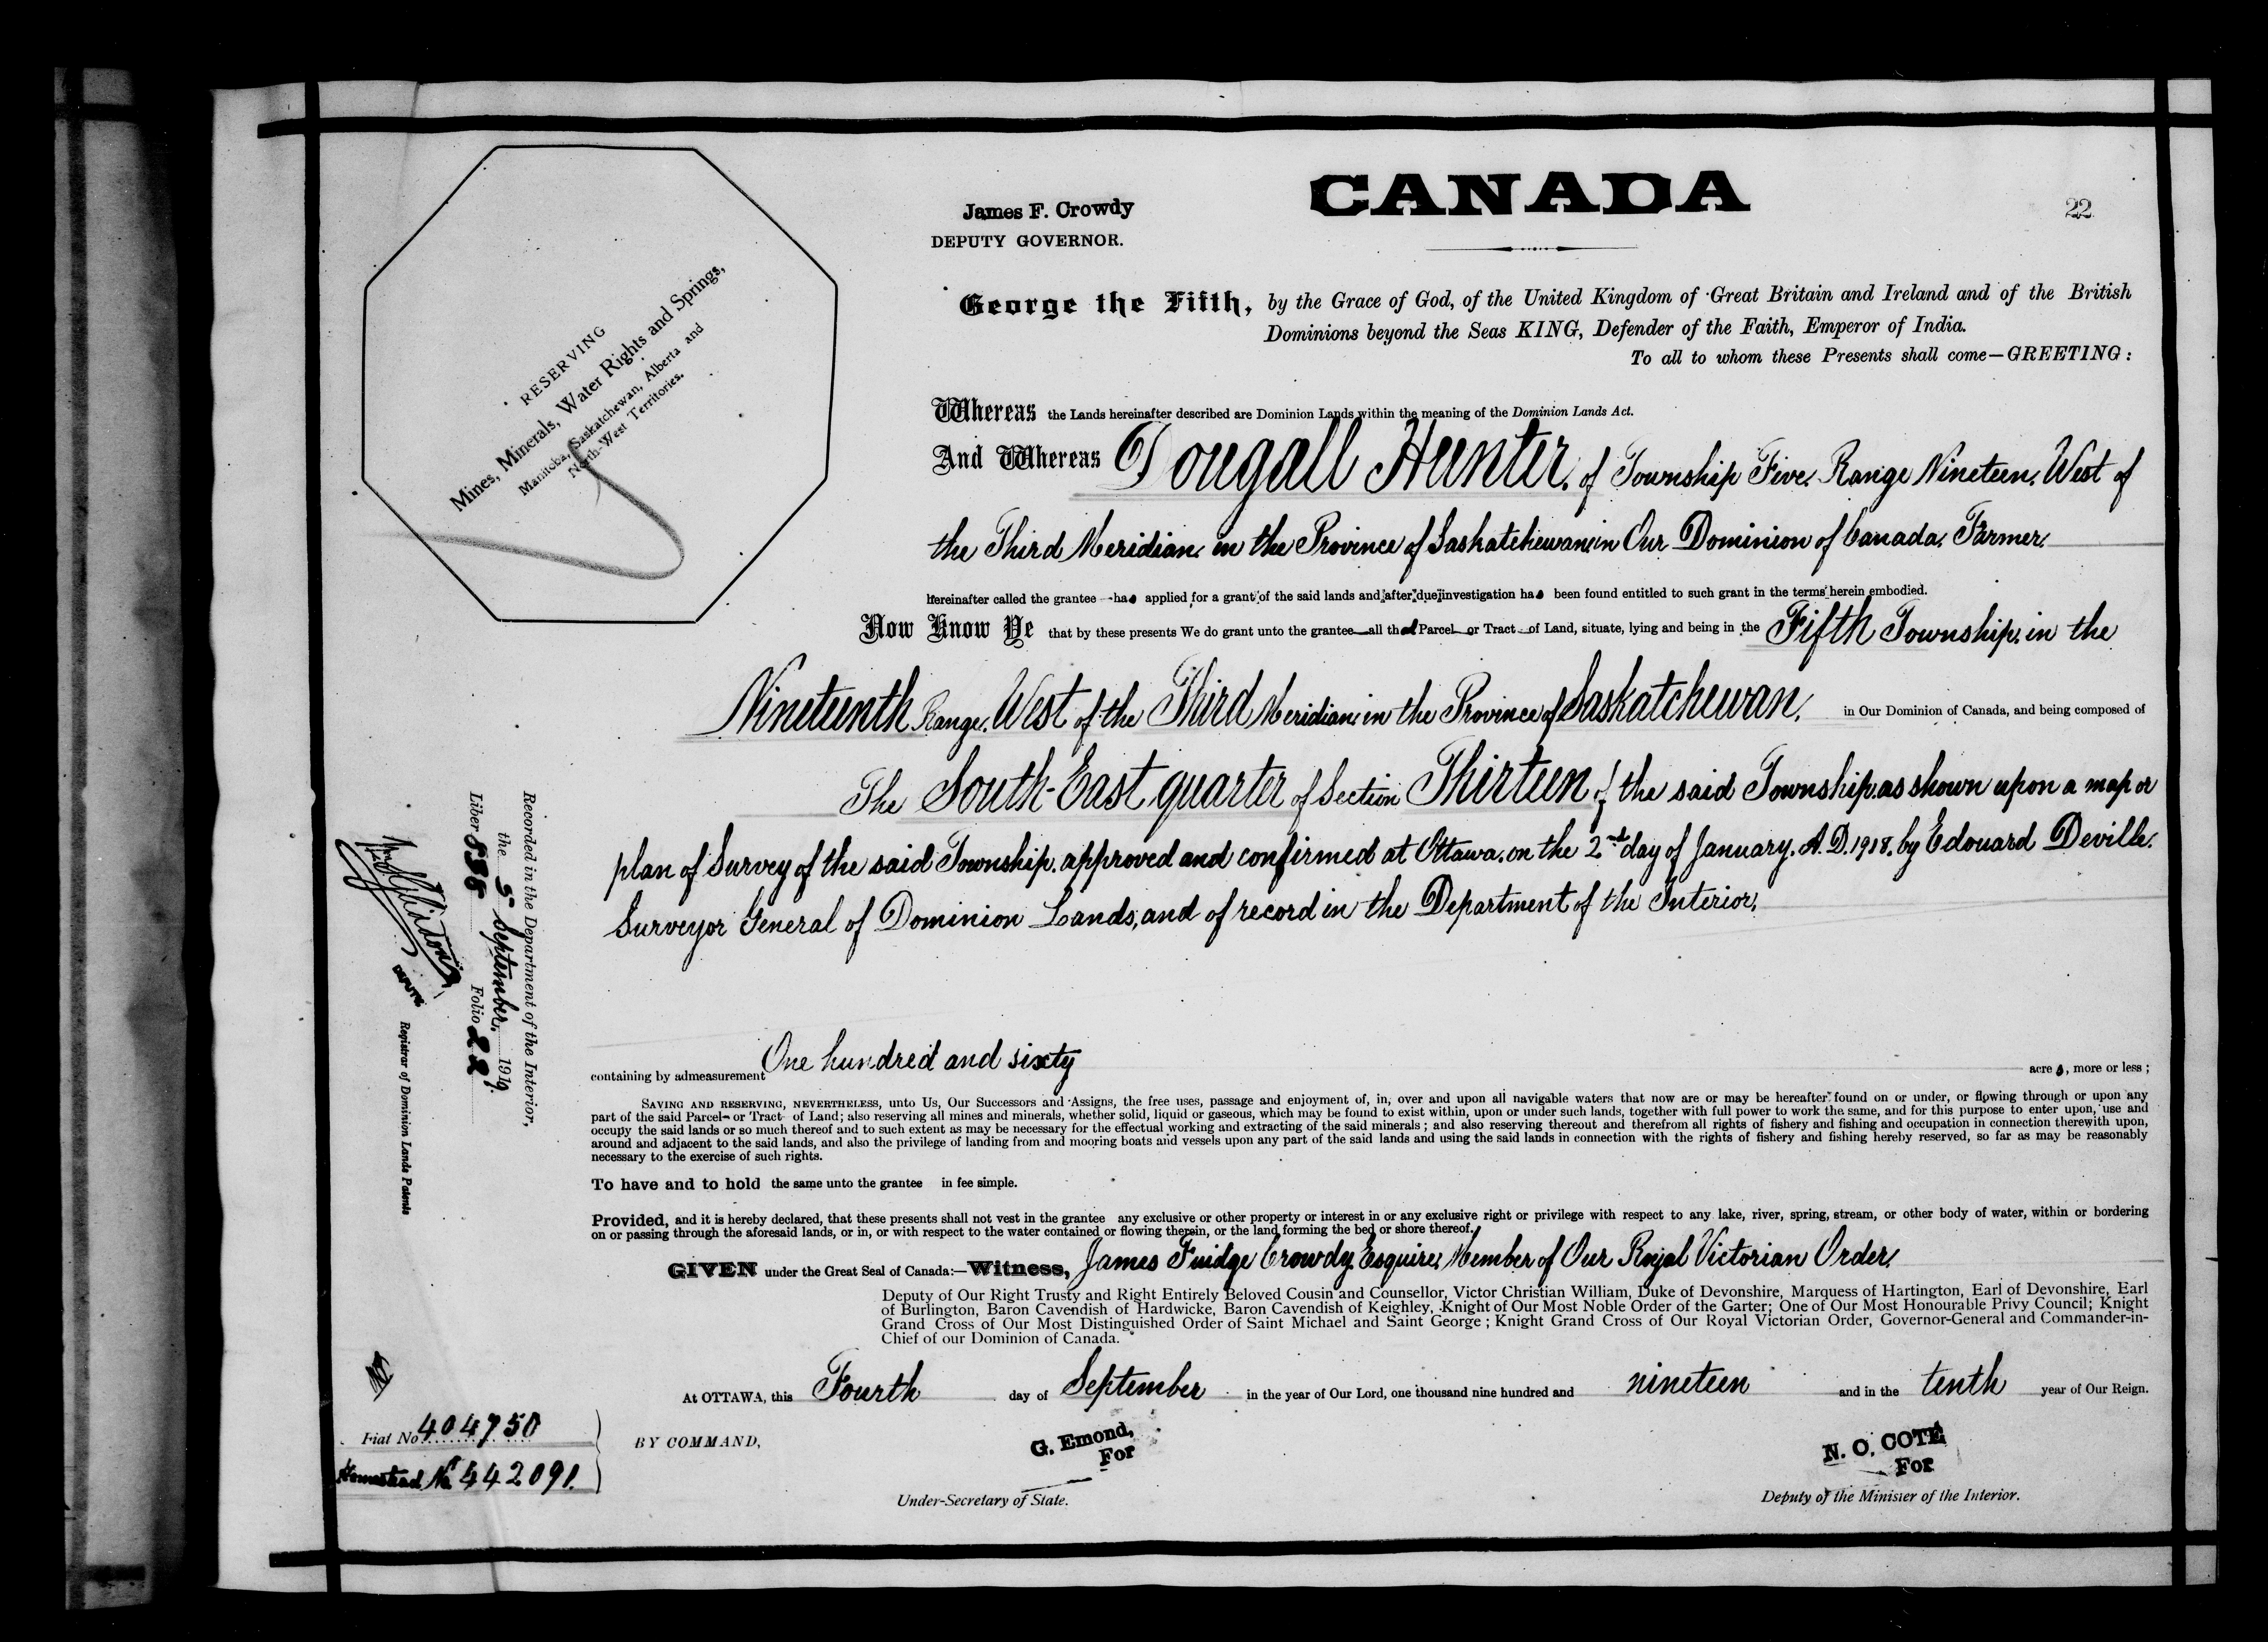 CANADA
22
James F. Crowdy
DEPUTY GOVERNOR.
RESERVING
Mines, Minerals, Water Rights and Springs,
Manitoba, Saskatchewan, Alberta and
North-West Territories.
George the Fifth, by the Grace of God, of the United Kingdom of Great Britain and Ireland and of the British
Dominions beyond the Seas KING, Defender of the Faith, Emperor of India.
To all to whom these Presents shall come—GREETING:
Whereas the Lands hereinafter described are Dominion Lands within the meaning of the Dominion Lands Act.
And Whereas Dougall Hunter, of Township Five, Range Nineteen, West of
the Third Meridian, in the Province of Saskatchewan, in Our Dominion of Canada, Farmer,
hereinafter called the grantee has applied for a grant of the said lands and after due investigation has been found entitled to such grant in the terms herein embodied.
Now Know Ye that by these presents We do grant unto the grantee all that Parcel or Tract of Land, situate, lying and being in the Fifth Township, in the
Nineteenth Range, West of the Third Meridian, in the Province of Saskatchewan, in Our Dominion of Canada, and being composed of
The South-East quarter of Section Thirteen of the said Township, as shown upon a map or
plan of Survey of the said Township, approved and confirmed at Ottawa, on the 2nd day of January, A.D. 1918, by Edouard Deville,
Surveyor General of Dominion Lands, and of record in the Department of the Interior,
containing by admeasurement One hundred and sixty acres, more or less;
SAVING AND RESERVING, NEVERTHELESS, unto Us, Our Successors and Assigns, the free uses, passage and enjoyment of, in, over and upon all navigable waters that now are or may be hereafter found on or under, or flowing through or upon any
part of the said Parcel or Tract of Land; also reserving all mines and minerals, whether solid, liquid or gaseous, which may be found to exist within, upon or under such lands, together with full power to work the same, and for this purpose to enter upon, use and
occupy the said lands or so much thereof and to such extent as may be necessary for the effectual working and extracting of the said minerals; and also reserving thereout and therefrom all rights of fishery and fishing and occupation in connection therewith upon,
around and adjacent to the said lands, and also the privilege of landing from and mooring boats and vessels upon any part of the said lands and using the said lands in connection with the rights of fishery and fishing hereby reserved, so far as may be reasonably
necessary to the exercise of such rights.
To have and to hold the same unto the grantee in fee simple.
Provided, and it is hereby declared, that these presents shall not vest in the grantee any exclusive or other property or interest in or any exclusive right or privilege with respect to any lake, river, spring, stream, or other body of water, within or bordering
on or passing through the aforesaid lands, or in, or with respect to the water contained or flowing therein, or the land forming the bed or shore thereof.
GIVEN under the Great Seal of Canada:—Witness, James Fuidge Crowdy, Esquire, Member of Our Royal Victorian Order,
Deputy of Our Right Trusty and Right Entirely Beloved Cousin and Counsellor, Victor Christian William, Duke of Devonshire, Marquess of Hartington, Earl of Devonshire, Earl
of Burlington, Baron Cavendish of Hardwicke, Baron Cavendish of Keighley, Knight of Our Most Noble Order of the Garter; One of Our Most Honourable Privy Council; Knight
Grand Cross of Our Most Distinguished Order of Saint Michael and Saint George; Knight Grand Cross of Our Royal Victorian Order, Governor-General and Commander-in-
Chief of our Dominion of Canada.
At OTTAWA, this Fourth day of September in the year of Our Lord, one thousand nine hundred and nineteen and in the tenth year of Our Reign.
BY COMMAND,
G. Emond,
For
Under-Secretary of State.
N. O. COTE
For
Deputy of the Minister of the Interior.
Recorded in the Department of the Interior,
the 5 September, 1919.
Liber 838 Folio 22
DEPUTY
Registrar of Dominion Lands Patents
Fiat No. 404750
Homestead No. 442091.